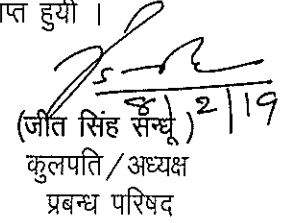 प्त हुयी ।
8/2/19
(जीत सिंह सन्धू)
कुलपति / अध्यक्ष
प्रबन्ध परिषद